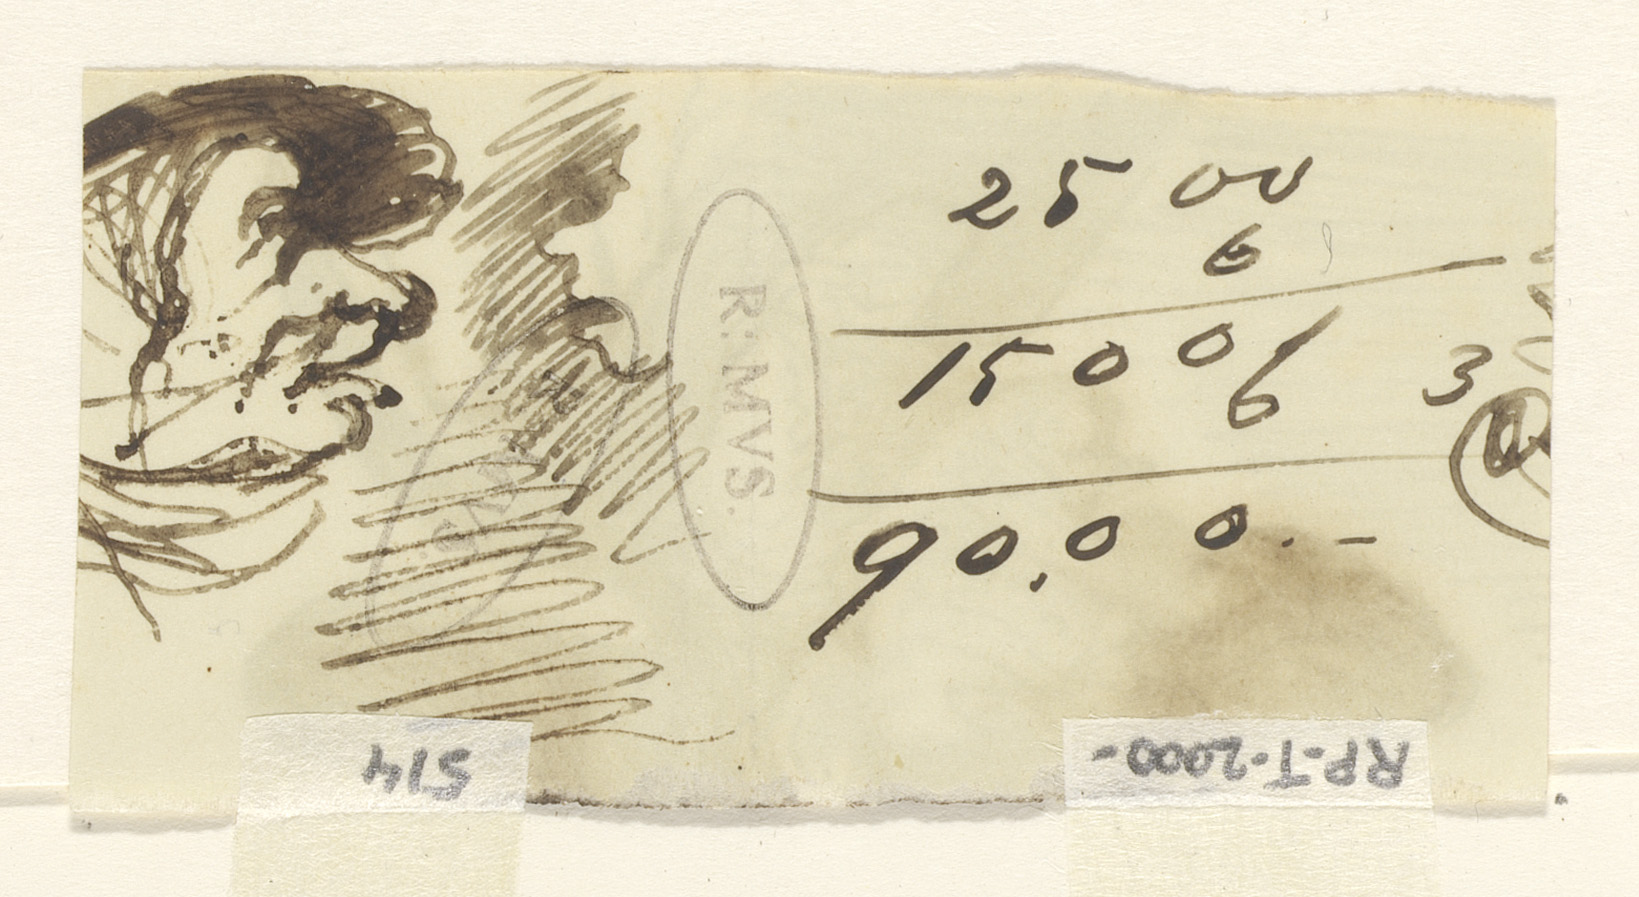 25 00
6
1500
6
3
90,00.-
R. MVS.
RP-T-2000-
514